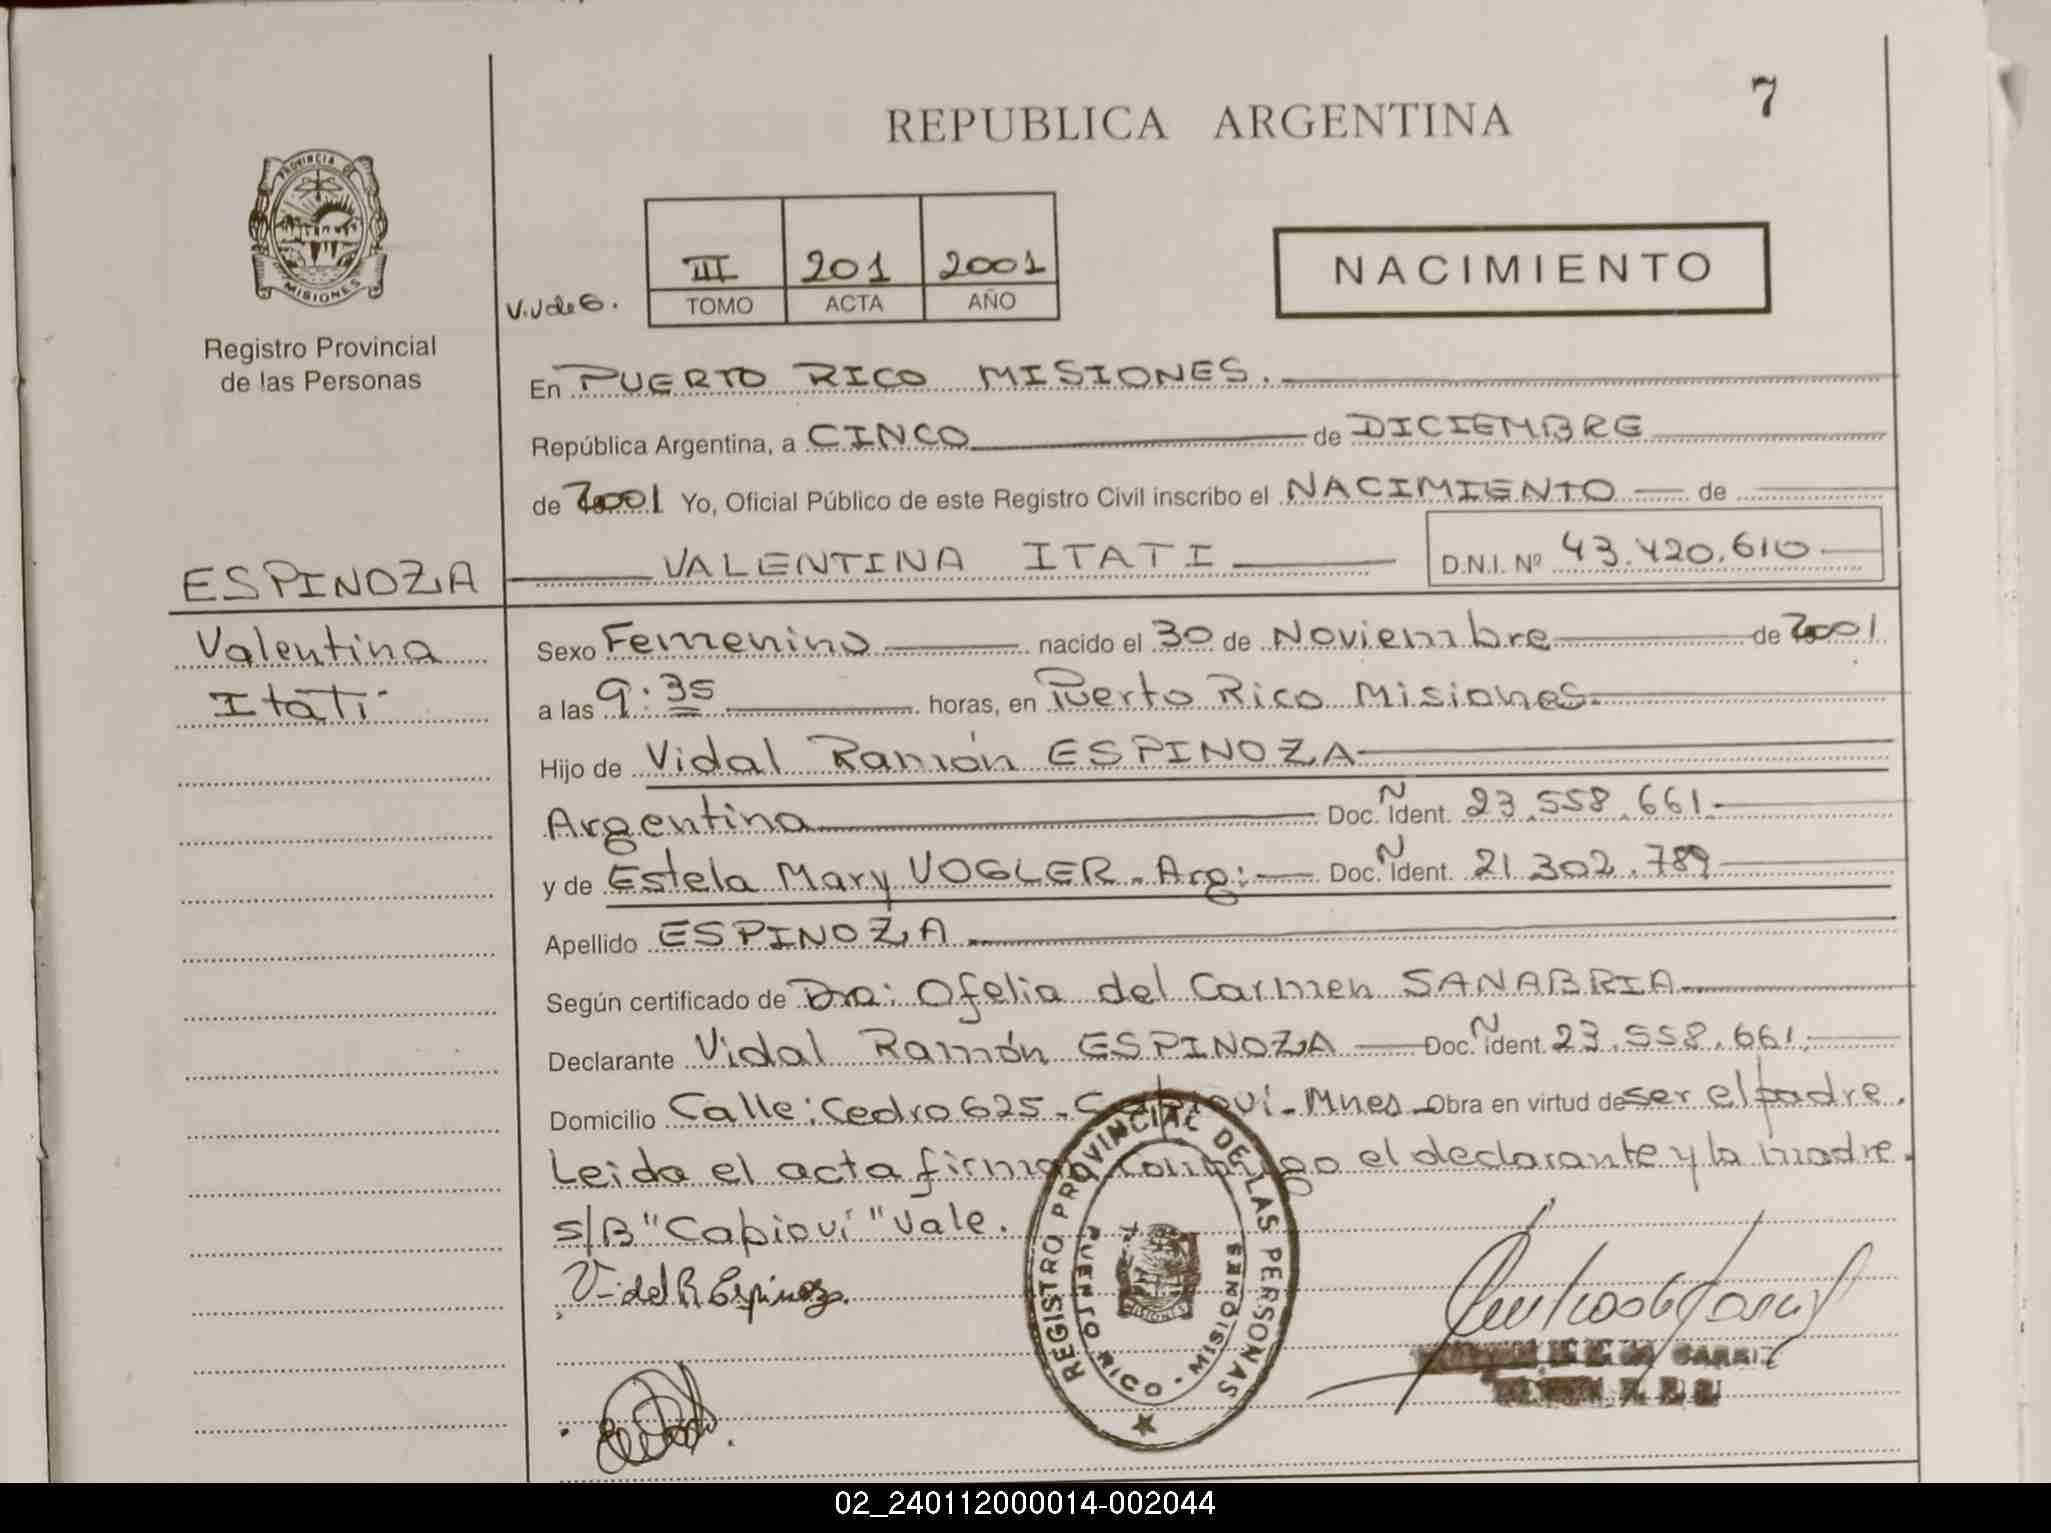 7
REPUBLICA ARGENTINA
PROVINCIA DE
MISIONES
Registro Provincial
de las Personas
V.V de G.
III 201 2001
TOMO ACTA AÑO
NACIMIENTO
En PUERTO RICO MISIONES.
República Argentina, a CINCO de DICIEMBRE
de 2001 Yo, Oficial Público de este Registro Civil inscribo el NACIMIENTO de
ESPINOZA VALENTINA ITATI D.N.I. Nº 43.420.610
Valentina
Itatí
Sexo Femenino nacido el 30 de Noviembre de 2001
a las 9:35 horas, en Puerto Rico Misiones
Hijo de Vidal Ramón ESPINOZA
Argentina Doc. Ñ Ident. 23.558.661.
y de Estela Mary VOGLER. Arg: Doc. Ñ Ident. 21.302.789
Apellido ESPINOZA
Según certificado de Dra: Ofelia del Carmen SANABRIA
Declarante Vidal Ramón ESPINOZA Doc. Ñ Ident. 23.558.661.
Domicilio Calle: Cedro 625. Capioví. Mnes. Obra en virtud de ser el padre.
Leida el acta firman conmigo el declarante y la madre.
s/B "Capioví" vale.
Vidal R Espinoza
REGISTRO PROVINCIAL DE LAS PERSONAS
PUERTO RICO - MISIONES
MISIONES
02_240112000014-002044